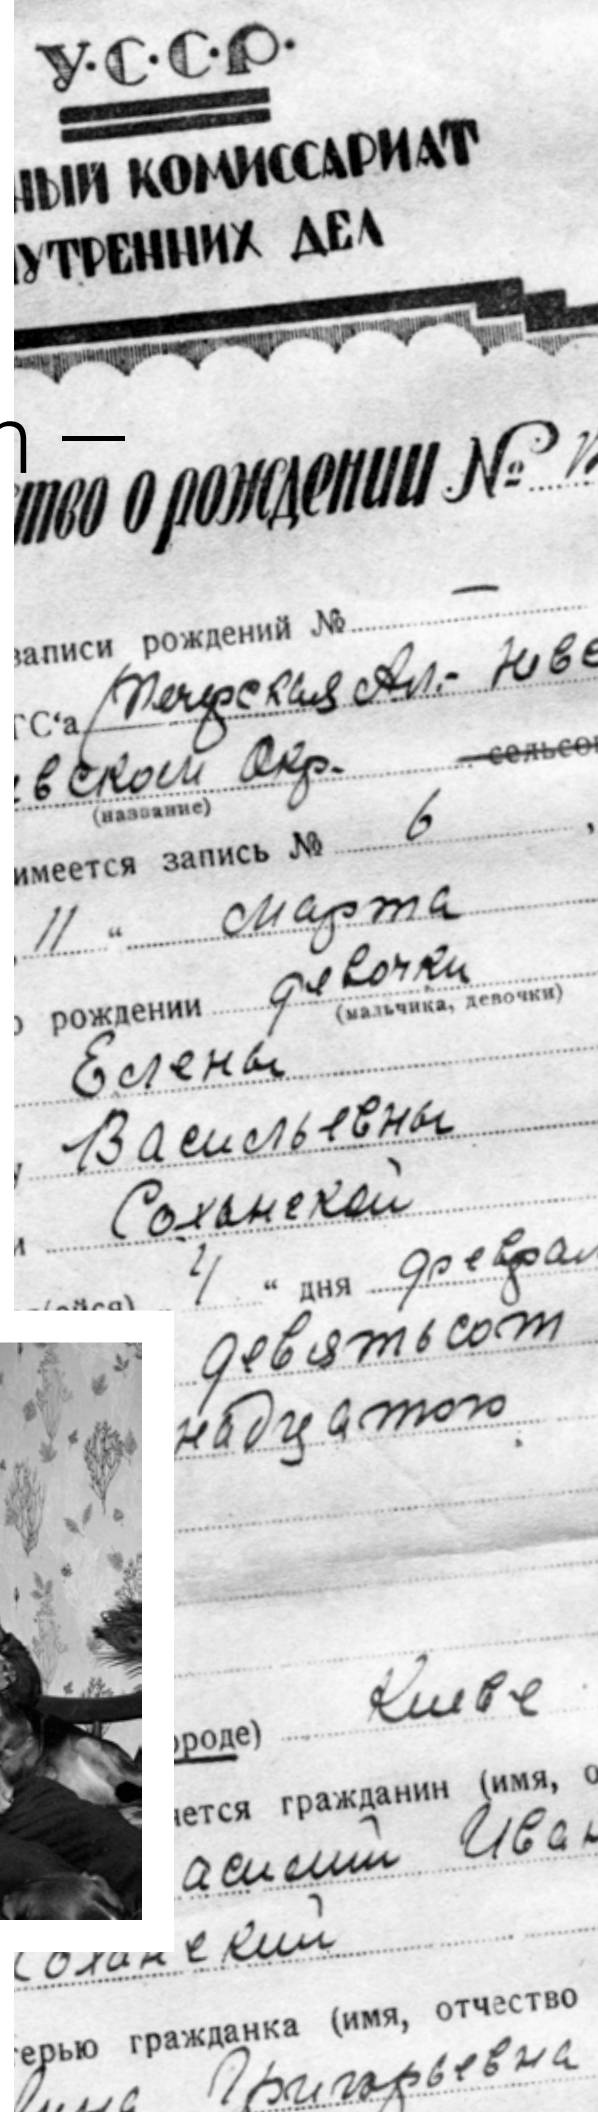 У·С·С·Р·
НЫЙ КОМИССАРИАТ
УТРЕННИХ ДЕЛ
n —
тво о рождении №
записи рождений № —
ГС'а Печерская Ал.-
евском Окр. сельсо
(название)
имеется запись № 6 ,
„ 11 “ марта
о рождении девочки
(мальчика, девочки)
Елены
у Васильевны
и Соханской
4 “ дня феврал
девятьсот
надцатого
ороде) Киеве
яется гражданин (имя, о
асилий Иван
Соханский
терью гражданка (имя, отчество
Григорьевна